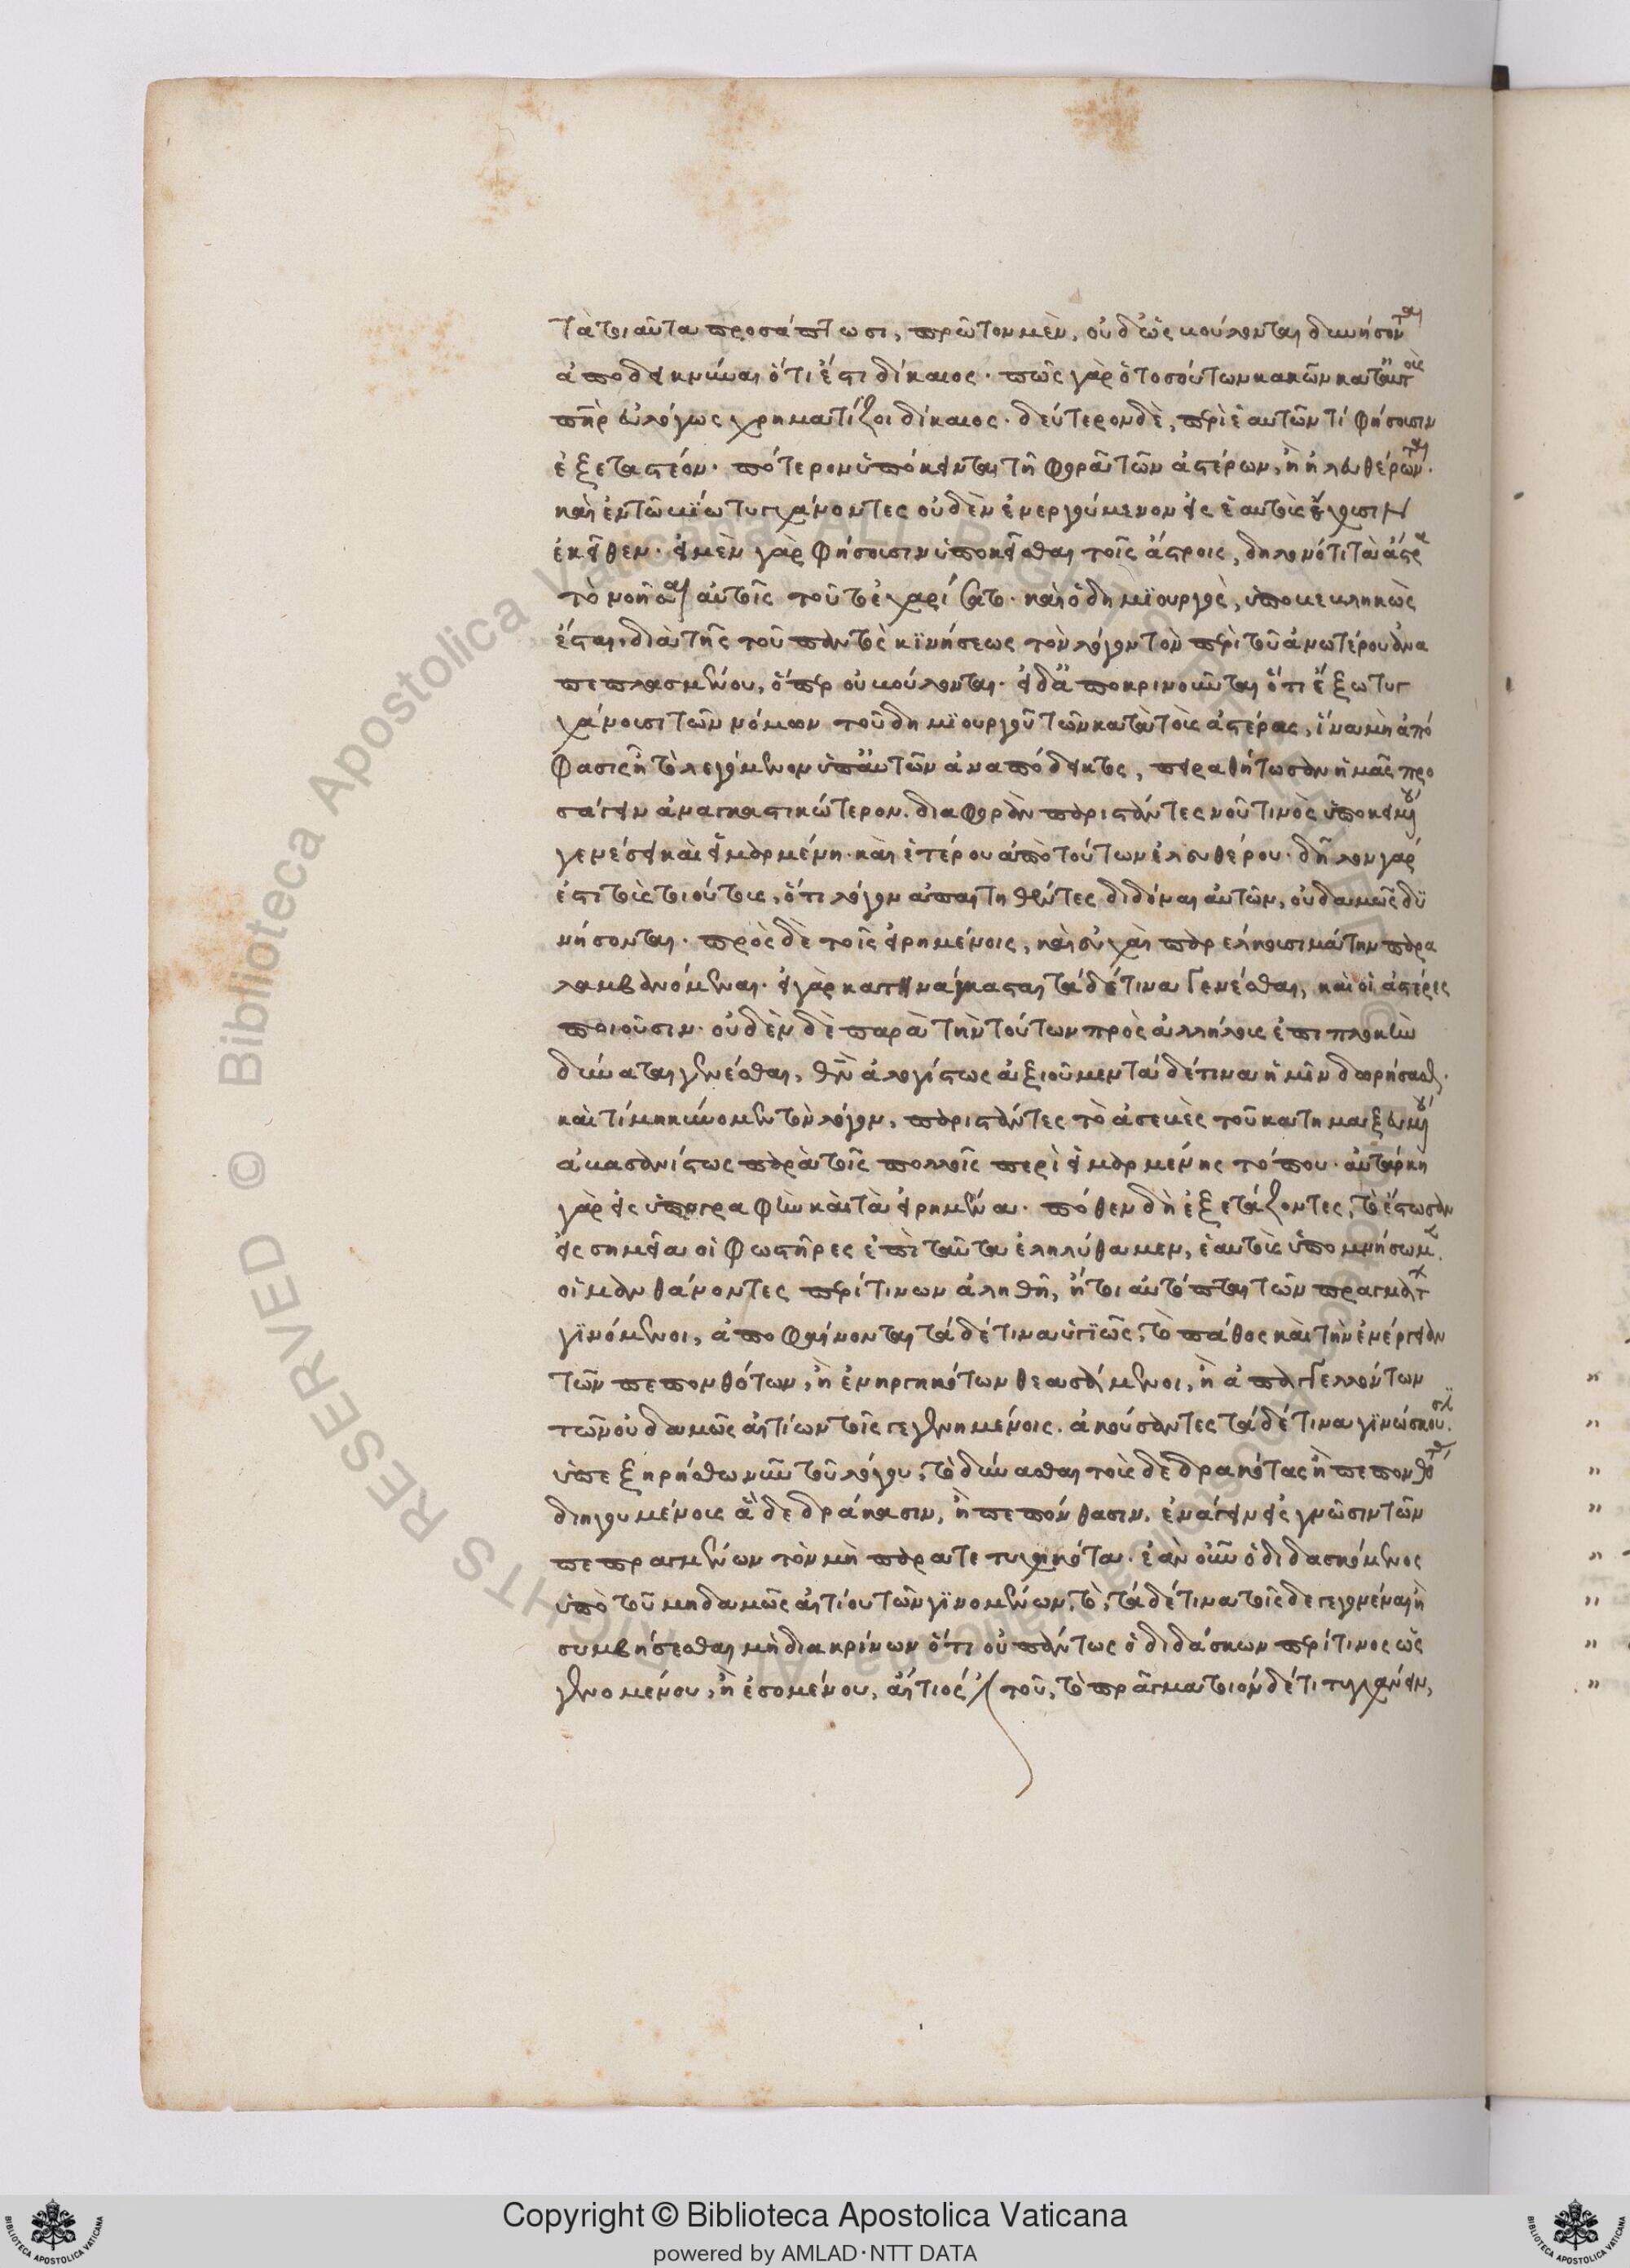 τὰ τοιαῦτα προσάπτωσι, πρῶτον μὲν, οὐδ' ὡς βούλονται δυνήσονται
ἀποδεικνύναι ὅτι ἐστὶ δίκαιος. πῶς γὰρ ὁ τοσούτων κακῶν κατ' αὐτοὺς
πατὴρ εὐλόγως χρηματίζοι δίκαιος. δεύτερον δὲ, περὶ ἑαυτῶν τί φήσουσιν
ἐξεταστέον. πότερον ὑπόκεινται τῇ φορᾷ τῶν ἀστέρων, ἢ ἠλευθέρωνται.
καὶ ἐν τῷ βίῳ τυγχάνοντες οὐδὲν ἐνεργούμενον εἰς ἑαυτοὺς ἔχουσιν
ἐκεῖθεν. εἰ μὲν γὰρ φήσουσιν ὑποκεῖσθαι τοῖς ἄστροις, δηλονότι τὰ ἄστρα
τὸ νοηθῆναι αὐτοῖς τοῦτο ἐχαρίσατο. καὶ ὁ δημιουργὸς, ὑποβεβληκὼς
ἔσται διὰ τῆς τοῦ παντὸς κινήσεως τὸν λόγον τὸν περὶ τοῦ ἀνωτέρου ἀνα
πεπλασμένου, ὅπερ οὐ βούλονται. εἰ δ' ἀποκρινοῦνται ὅτι ἔξω τυγ
χάνουσι τῶν νόμων τοῦ δημιουργοῦ τῶν κατὰ τοὺς ἀστέρας, ἵνα μὴ ἀπό
φασις ᾖ τὸ λεγόμενον ὑπ' αὐτῶν ἀναπόδεικτος, πειραθήτωσαν ἡμᾶς προ
σάγειν ἀναγκαστικώτερον. διαφορὰν παριστάντες νοῦ τινὸς ὑποκειμένου
γενέσει καὶ εἱμαρμένῃ. καὶ ἑτέρου ἀπὸ τούτων ἐλευθέρου. δῆλον γάρ
ἐστι τοῖς τοιούτοις, ὅτι λόγον ἀπαιτηθέντες διδόναι αὐτὸν, οὐδαμῶς δυ
νήσονται. πρὸς δὲ τοῖς εἰρημένοις, καὶ εὐχαὶ παρέλκουσι μάτην παρα
λαμβανόμεναι. εἰ γὰρ κατηνάγκασται τάδέ τινα γενέσθαι, καὶ οἱ ἀστέρες
ποιοῦσιν. οὐδὲν δὲ παρὰ τὴν τούτων πρὸς ἀλλήλους ἐπιπλοκὴν
δύναται γενέσθαι, θεὸν ἀλογίστως ἀξιοῦμεν τάδέ τινα ἡμῖν δωρήσασθαι.
καὶ τί μηκύνομεν τὸν λόγον, παριστάντες τὸ ἀσεβὲς τοῦ κατημαξευμένου
ἀβασανίστως παρὰ τοῖς πολλοῖς περὶ εἱμαρμένης τόπου. αὐτάρκη
γὰρ εἰς ὑπογραφὴν καὶ τὰ εἰρημένα. πόθεν δὴ ἐξετάζοντες, τὸ ἔστωσαν
εἰς σημεῖα οἱ φωστῆρες ἐπὶ ταῦτα ἐληλύθαμεν, ἑαυτοὺς ὑπομνήσωμεν.
οἱ μανθάνοντες περί τινων ἀληθῆ, ἤτοι αὐτόπται τῶν πραγμάτων
γινόμενοι, ἀποφαίνονται τάδέ τινα ὑγιῶς, τὸ πάθος καὶ τὴν ἐνέργειαν
τῶν πεπονθότων, ἢ ἐνηργηκότων θεασάμενοι, ἢ ἀπαγγελλόντων
τῶν οὐδαμῶς αἰτίων τοῖς γεγενημένοις. ἀκούσαντες τάδέ τινα γινώσκουσι.
ὑπεξῃρήσθω νῦν τοῦ λόγου, τὸ δύνασθαι τοὺς δεδρακότας ἢ πεπονθότας
διηγουμένους ἃ δεδράκασιν, ἢ πεπόνθασιν, ἐνάγειν εἰς γνῶσιν τῶν
πεπραγμένων τὸν μὴ παρατετυχηκότα. ἐὰν οὖν ὁ διδασκόμενος
ὑπὸ τοῦ μηδαμῶς αἰτίου τῶν γινομένων, τὸ, τάδέ τινα τοῖσδε γεγονέναι ἢ
συμβήσεσθαι μὴ διακρίνων ὅτι οὐ πάντως ὁ διδάσκων περί τινος ὡς
γενομένου, ἢ ἐσομένου, αἴτιός ἐστι τοῦ, τὸ πρᾶγμα τοιόνδέ τι τυγχάνειν,
Copyright © Biblioteca Apostolica Vaticana
powered by AMLAD·NTT DATA